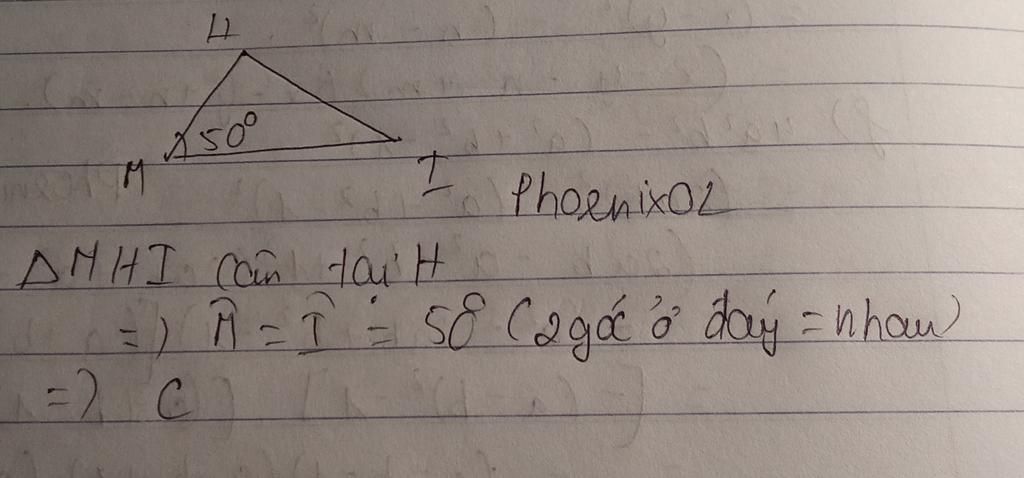 H
50°
M
I
Phoenix02
ΔMHI cân tại H
=) M̂ = Î = 50° (2 góc ở đáy = nhau)
=) C